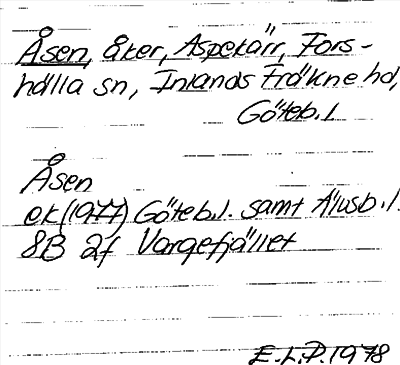 Åsen, åker, Aspekärr, Fors-
hälla sn, Inlands Fräkne hd,
Göteb. l
Åsen
ek (1977) Göteb. l. samt Älvsb. l.
8B 2f Vargefjället
E.L.P. 1978